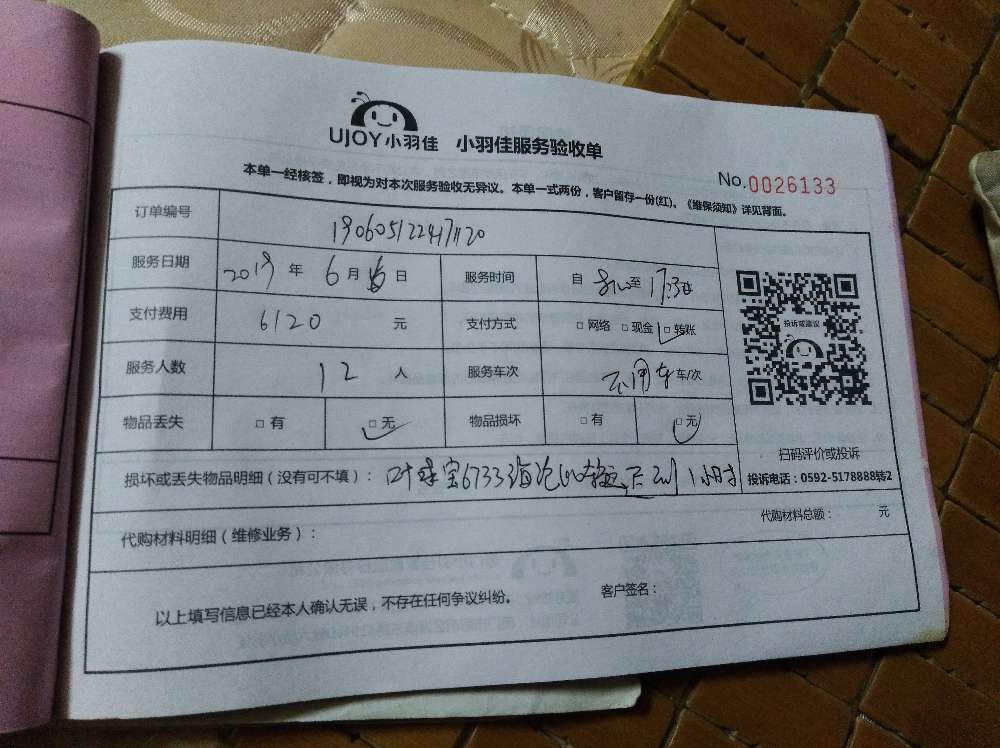 UJOY小羽佳 小羽佳服务验收单
No.0026133
本单一经核签，即视为对本次服务验收无异议。本单一式两份，客户留存一份(红)。《维保须知》详见背面。
订单编号
服务日期 2019 年 6 月 日 服务时间 自 至 17:30
支付费用 6120 元 支付方式 □ 网络 □ 现金 □ 转账
服务人数 12 人 服务车次 不用车 车/次
物品丢失 □ 有 □ 无 物品损坏 □ 有 □ 无
投诉或建议
扫码评价或投诉
投诉电话：0592-5178888转2
损坏或丢失物品明细（没有可不填）： 叶 宝6733海沧 1小时
代购材料明细（维修业务）： 代购材料总额： 元
以上填写信息已经本人确认无误，不存在任何争议纠纷。 客户签名：